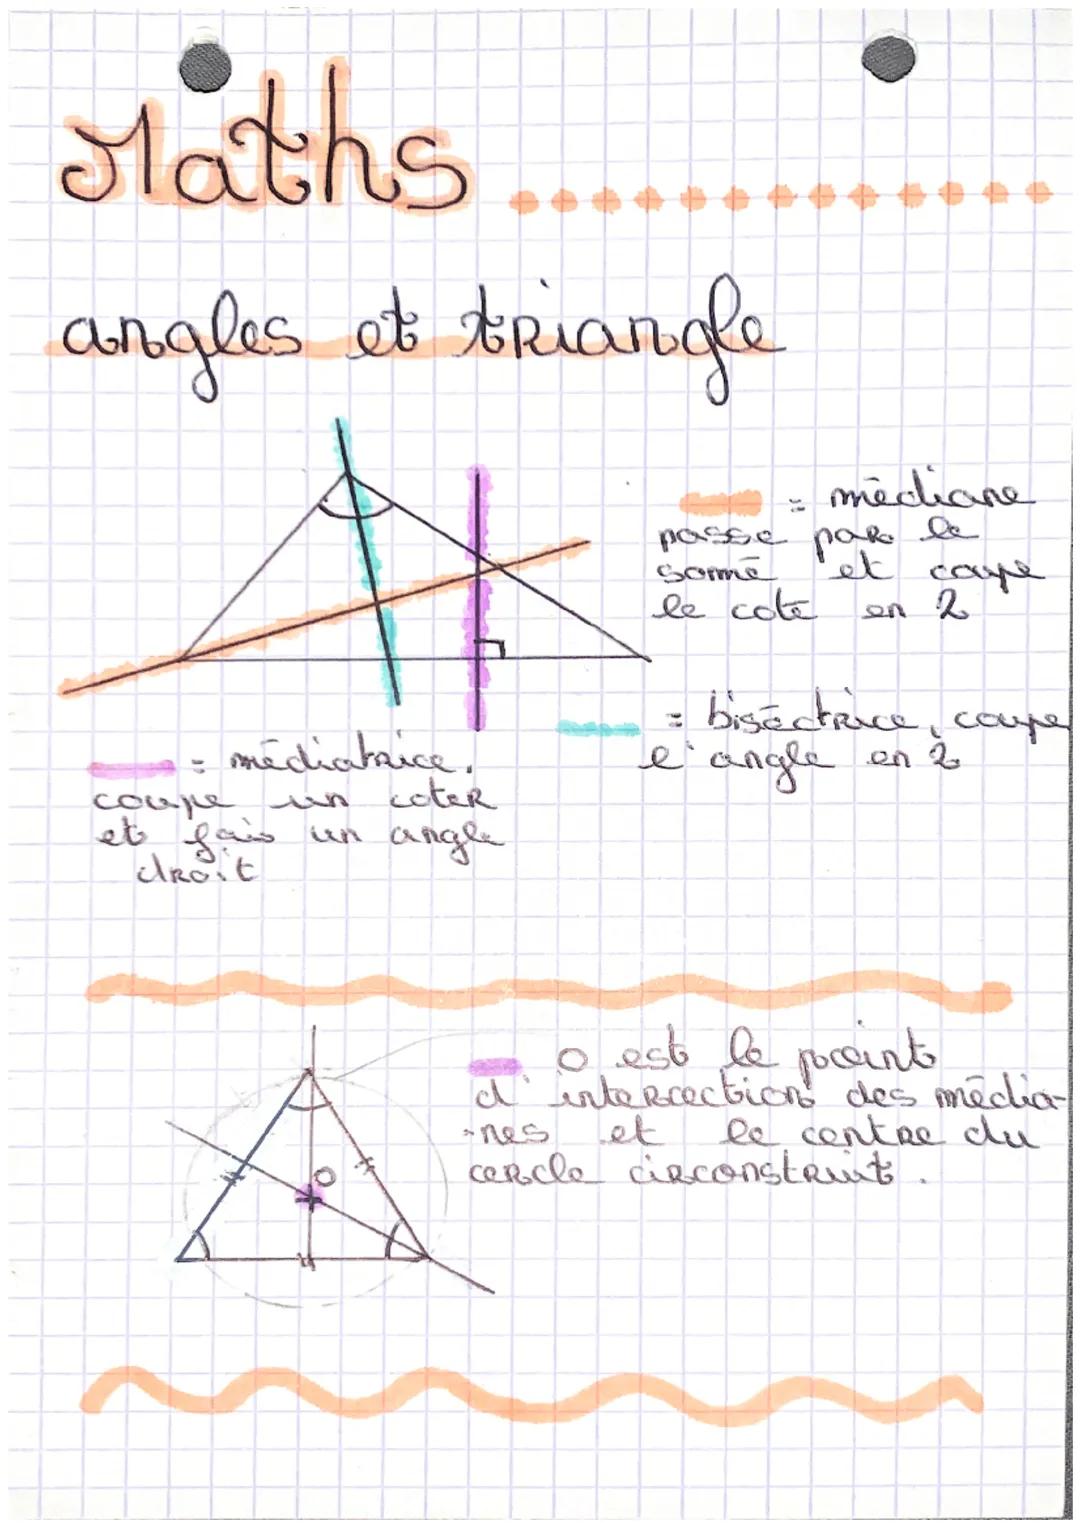 Maths
angles et triangle
= médiane
passe par le
somé et coupe
le cote en 2
= biséctrice, coupe
l'angle en 2
= médiatrice,
coupe un coter
et fais un angle
droit
O est le point
d'intercection des média-
-nes et le centre du
cercle circonstruit.
O